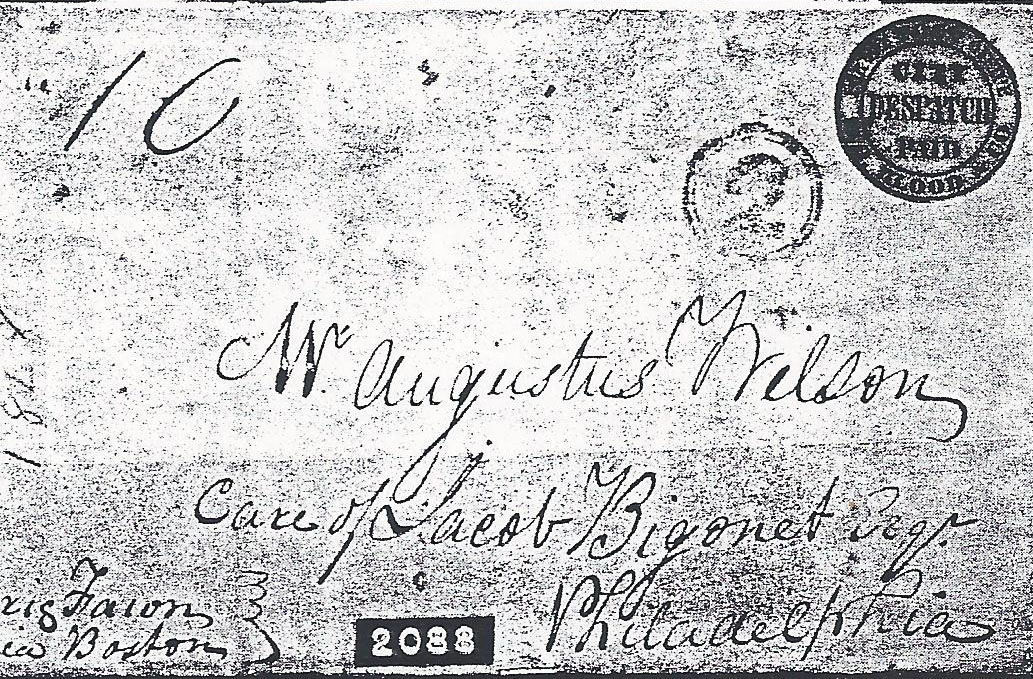 10
2
CITY
DESPATCH
PAID
BLOOD
Mr. Augustus Wilson
Care of Jacob Bigonet Esqr.
Philadelphia
Fawn
Boston
2088